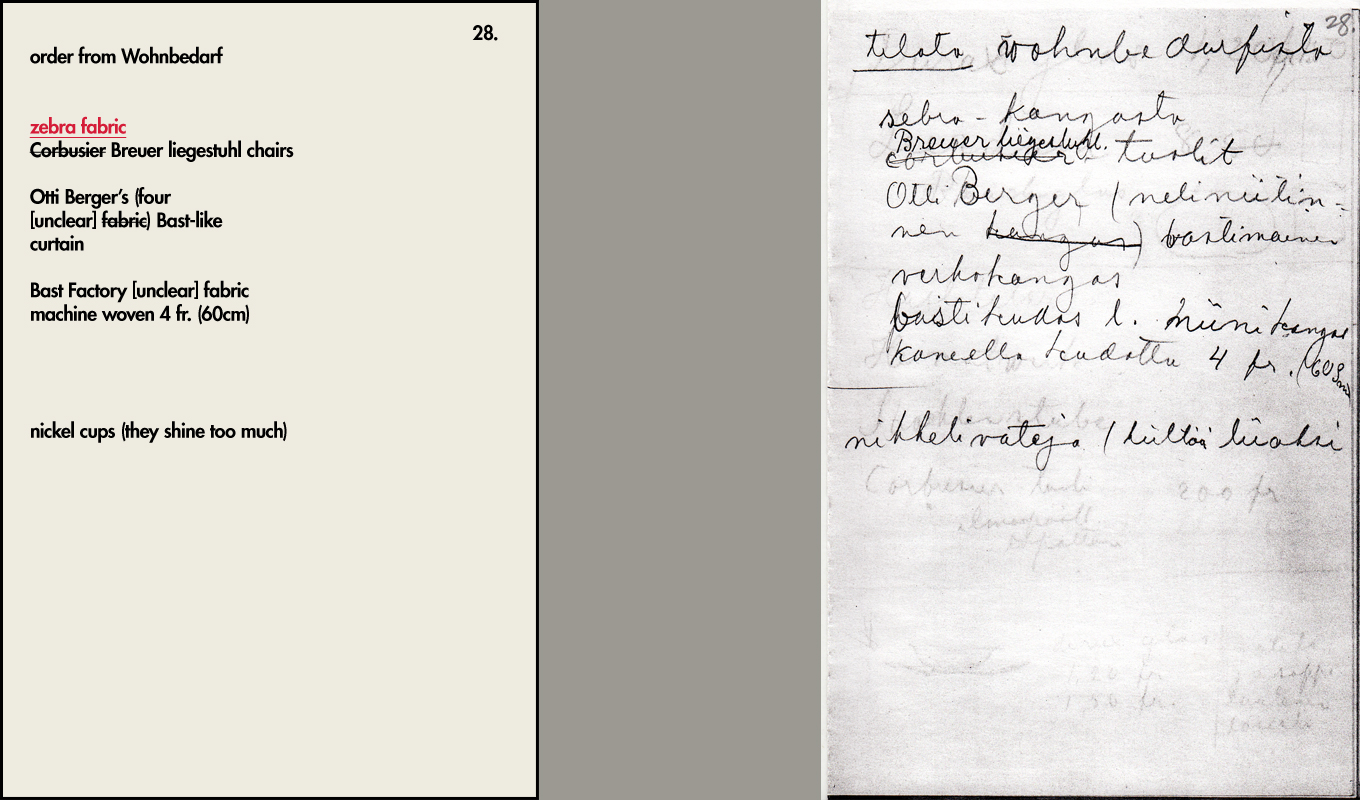 28.
order from Wohnbedarf
zebra fabric
Corbusier Breuer liegestuhl chairs
Otti Berger's (four
[unclear] fabric) Bast-like
curtain
Bast Factory [unclear] fabric
machine woven 4 fr. (60cm)
nickel cups (they shine too much)
28.
tilata wohnbedarfista
sebra - kangasta
Breuer liegestuhl.
corbusier - tuolit
Otti Berger (neliniitin-
nen kangas) bastimainen
verhokangas
bastikudos l. niinikangas
koneella kudottu 4 fr. (60
nikkelivateja (kiiltää liiaksi
Corbusier tuoli 200 fr